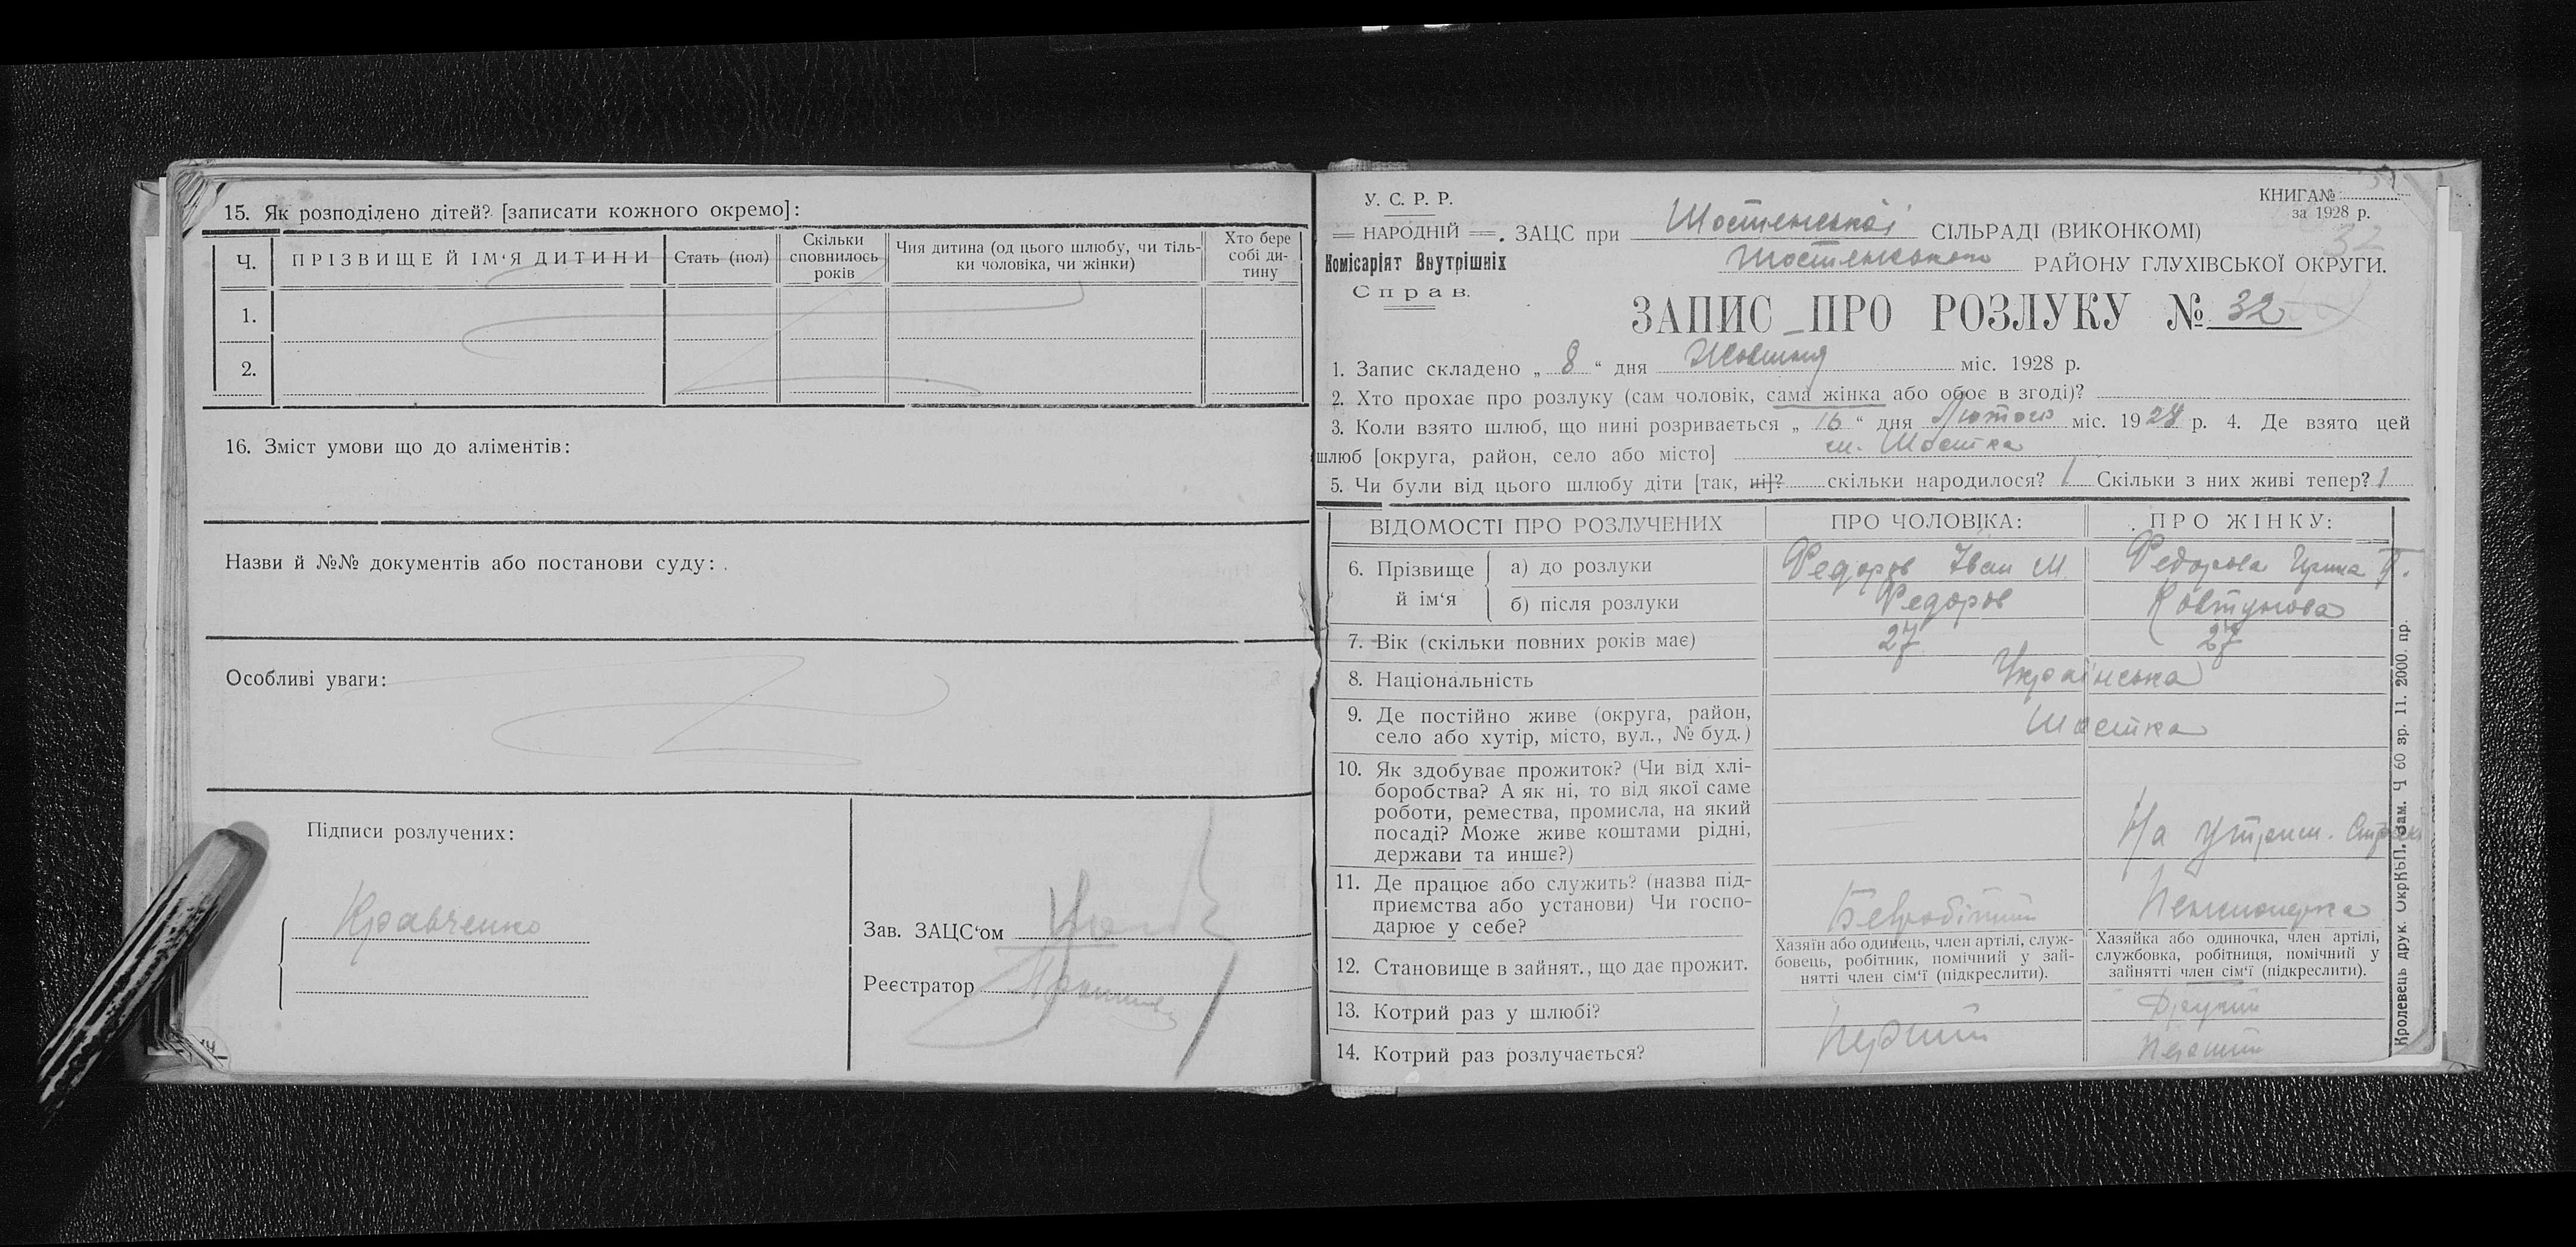 15. Як розподілено дітей? [записати кожного окремо]:
Ч. ПРІЗВИЩЕ Й ІМ‘Я ДИТИНИ Стать (пол) Скільки сповнилось років Чия дитина (од цього шлюбу, чи тільки чоловіка, чи жінки) Хто бере собі дитину
1.
2.
16. Зміст умови що до аліментів:
Назви й №№ документів або постанови суду:
Особливі уваги:
Підписи розлучених:
Кравченко
Зав. ЗАЦС‘ом
Реєстратор
У. С. Р. Р.
НАРОДНІЙ
Комісаріят Внутрішніх
Справ.
КНИГА №
за 1928 р.
32
ЗАЦС при Шостенській СІЛЬРАДІ (ВИКОНКОМІ)
Шостенського РАЙОНУ ГЛУХІВСЬКОЇ ОКРУГИ.
ЗАПИС ПРО РОЗЛУКУ № 32
1. Запис складено „ 8 “ дня Жовтня міс. 1928 р.
2. Хто прохає про розлуку (сам чоловік, сама жінка або обоє в згоді)?
3. Коли взято шлюб, що нині розривається „ 16 “ дня Лютого міс. 19 р. 4. Де взято цей
шлюб [округа, район, село або місто] м. Шостка
5. Чи були від цього шлюбу діти [так, ні]? скільки народилося? 1 Скільки з них живі тепер? 1
ВІДОМОСТІ ПРО РОЗЛУЧЕНИХ ПРО ЧОЛОВІКА: ПРО ЖІНКУ:
6. Прізвище й ім‘я а) до розлуки Федоров Іван М. Федорова Ірина Т.
б) після розлуки Федоров Ковтунова
7. Вік (скільки повних років має) 27 27
8. Національність Українська
9. Де постійно живе (округа, район,
село або хутір, місто, вул., № буд.) Шостка
10. Як здобуває прожиток? (Чи від хлі-
боробства? А як ні, то від якої саме
роботи, ремества, промисла, на який
посаді? Може живе коштами рідні, На утрим.
держави та инше?)
11. Де працює або служить? (назва під-
приємства або установи) Чи госпо- Безробітний Пенсионерка
дарює у себе?
12. Становище в зайнят., що дає прожит.
Хазяїн або одинець, член артілі, служ-
бовець, робітник, помічний у зай-
нятті член сім‘ї (підкреслити).
Хазяйка або одиночка, член артілі,
службовка, робітниця, помічний у
зайнятті член сім‘ї (підкреслити).
13. Котрий раз у шлюбі? Другий
14. Котрий раз розлучається? Перший Перший
Кролевець друк. ОкрКЬП. Зам. Ч 60 зр. 11. 2000. пр.